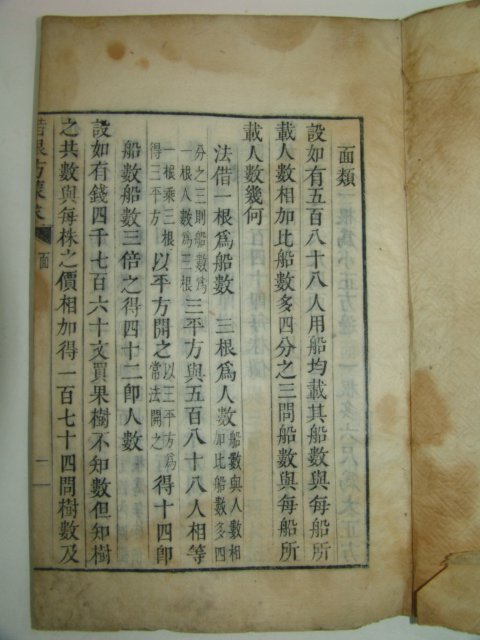 面類
設如有五百八十八人用船均載其船數與每船所
載人數相加比船數多四分之三問船數與每船所
載人數幾何
法借一根爲船數 三根爲人數船數與人數相加比船數多四
分之三則船數爲一根人數爲三根三平方與五百八十八人相等
一根乘三根得三平方以平方開之以三平方爲常法開之得十四卽
船數船數三倍之得四十二卽人數
設如有錢四千七百六十文買果樹不知數但知樹
之共數與每株之價相加得一百七十四問樹數及
根方蒙求 面 一